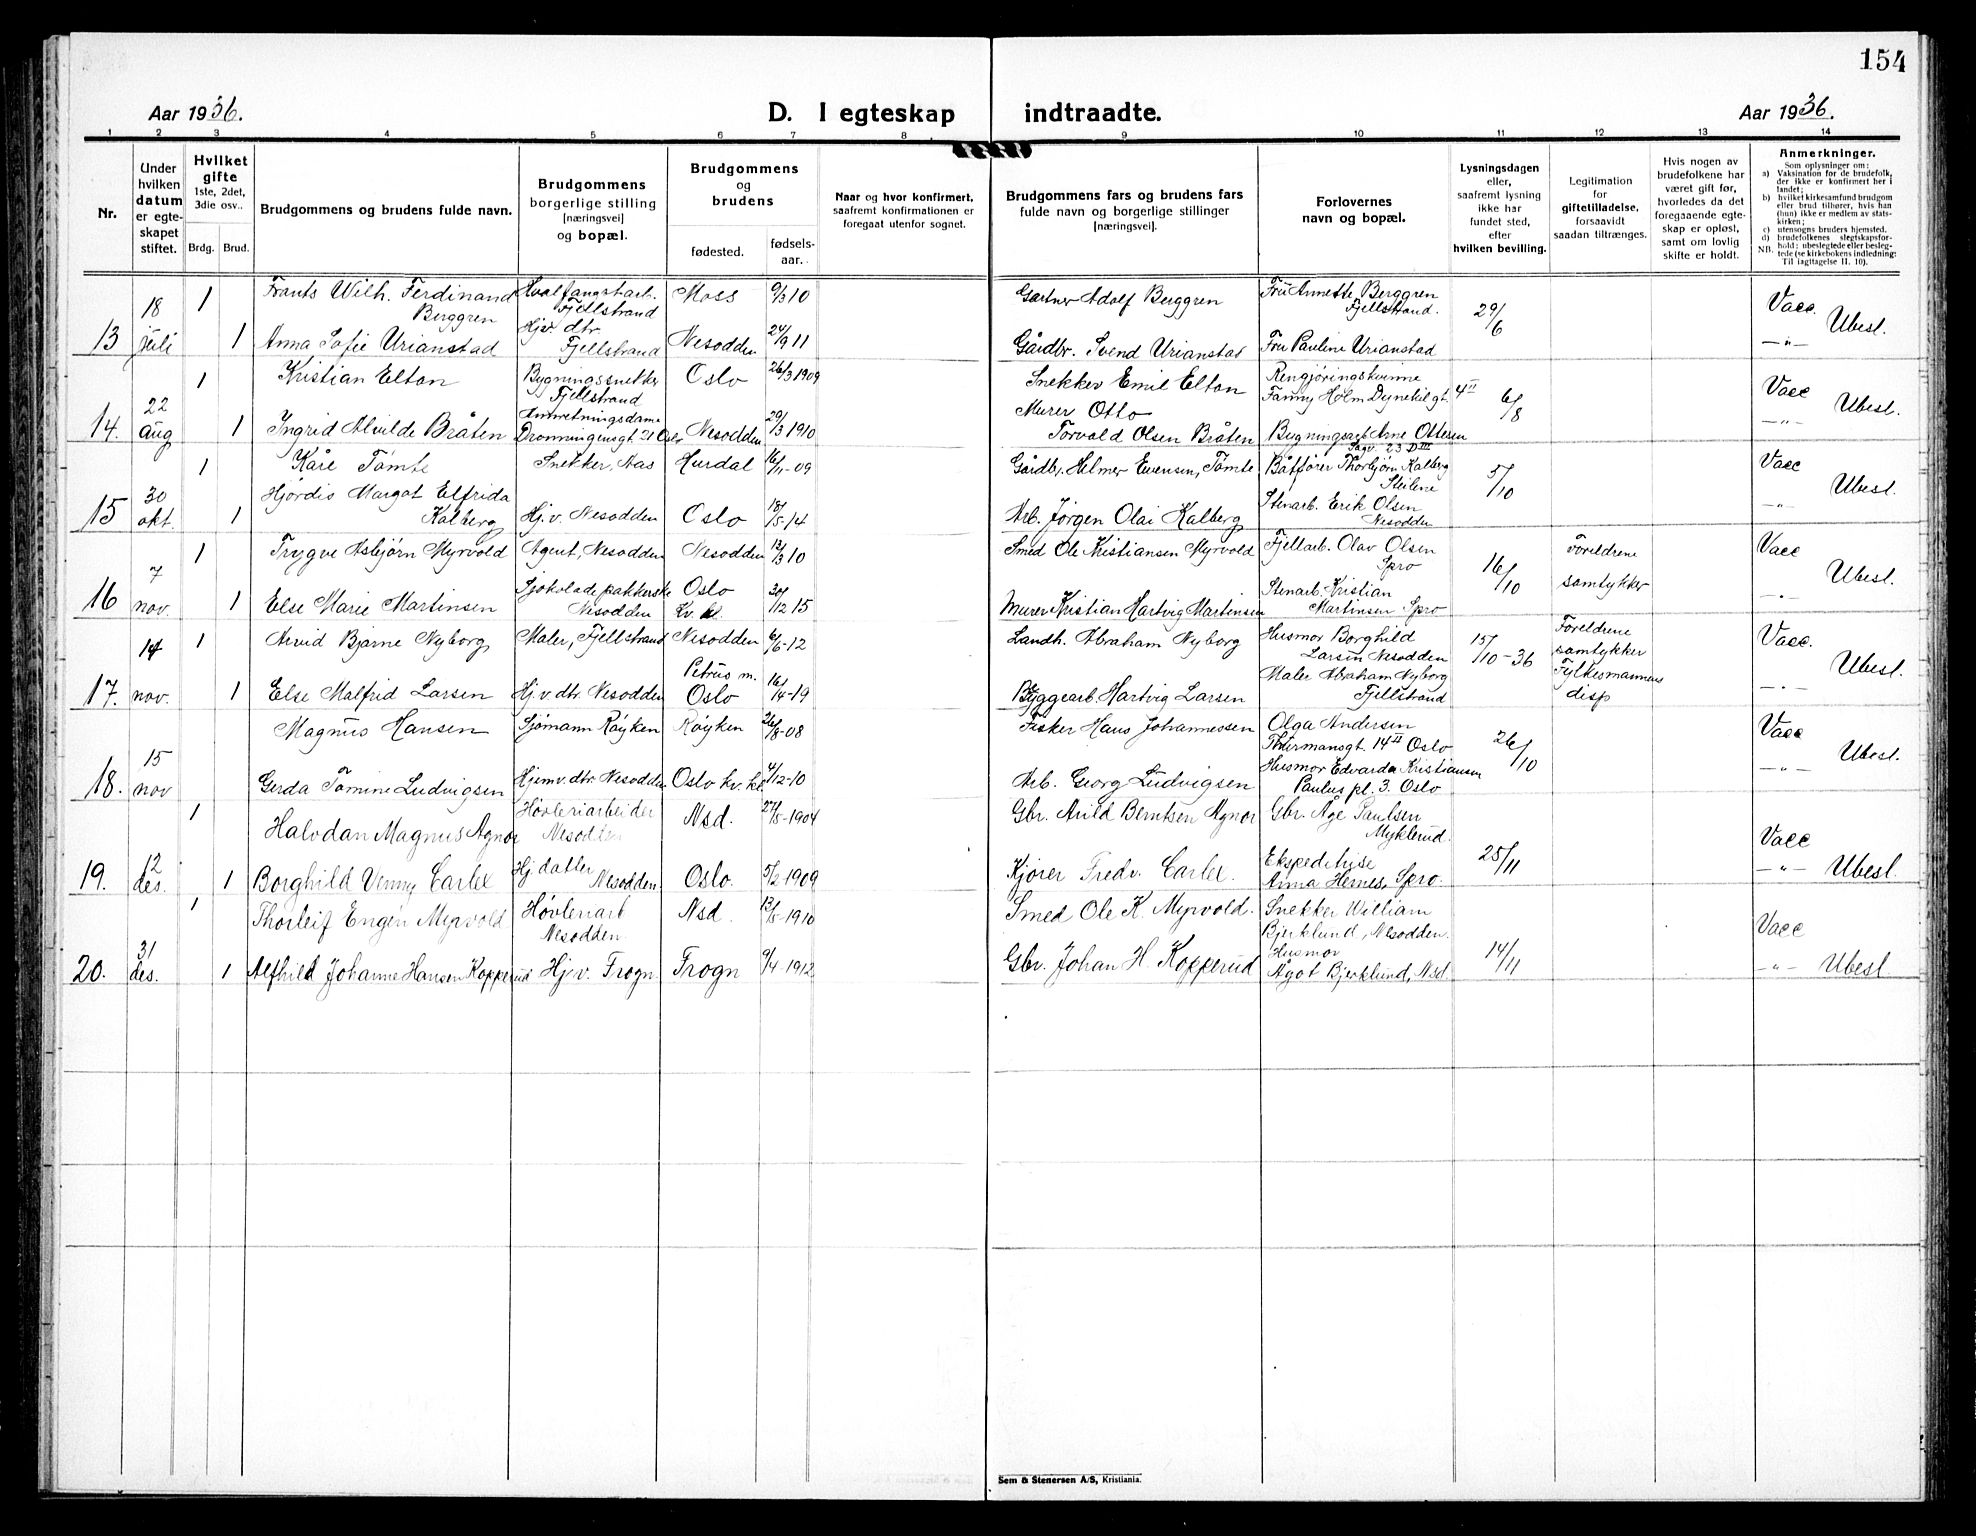 154
Aar 1936.
D. I egteskap indtraadte.
Aar 1936.
1 2 3 4 5 6 7 8 9 10 11 12 13 14
Nr.
Under hvilken datum er egteskapet stiftet.
Hvilket gifte
1ste, 2det, 3die osv..
Brdg. Brud.
Brudgommens og brudens fulde navn.
Brudgommens borgerlige stilling [næringsvei] og bopæl.
Brudgommens og brudens
fødested.
fødselsaar.
Naar og hvor konfirmert, saafremt konfirmationen er foregaat utenfor sognet.
Brudgommens fars og brudens fars fulde navn og borgerlige stillinger [næringsvei].
Forlovernes navn og bopæl.
Lysningsdagen eller, saafremt lysning ikke har fundet sted, efter hvilken bevilling.
Legitimation for giftetilladelse, forsaavidt saadan tiltrænges.
Hvis nogen av brudefolkene har været gift før, hvorledes da det foregaaende egteskap er opløst, samt om lovlig skifte er holdt.
Anmerkninger.
Som oplysninger om:
a) Vaksination for de brudefolk, der ikke er konfirmert her i landet;
b) hvilket kirkesamfund brudgom eller brud tilhører, hvis han (hun) ikke er medlem av statskirken;
c) utensogns bruders hjemsted.
d) brudefolkenes slegtskapsforhold; ubeslegtede eller beslegtede (se kirkebokens indledning: NB. Til iagttagelse II. 10).
18 1 Frants Wilh. Ferdinand Berggren Hvalfangstarb. Fjellstrand Moss 9/3 10 Gartner Adolf Berggren Fru Annette Berggren Fjellstrand. 29/6 Vacc. Ubesl.
13 juli 1 Anna Sofie Urianstad Hjv. dtr. Fjellstrand Nesodden 24/9 11 Gårdbr. Svend Urianstad Fru Pauline Urianstad -"-
1 Kristian Elton Bygningssnekker Fjellstrand Oslo 26/3 1909 Snekker Emil Elton Rengjøringskvinne Fanny Holm Dynekilgt. 4 II 6/8 Vacc Ubesl.
14. 22 aug 1 Ingrid Alvilde Bråten Anretningsdame Dronningensgt. 21 Oslo Nesodden 29/3 1910 Murer Otto Torvald Olsen Bråten Bygningsarb Arne Ottesen Sagv. 23 D III -"-
1 Kåre Tømte Snekker, Aas Hurdal 16/11-09 Gårdbr. Helmer Evensen, Tømte Båtfører Thorbjørn Kalberg Steilene 5/10 Vacc Ubesl.
15 30 okt. 1 Hjørdis Margot Elfrida Kalberg Hj.v. Nesodden Oslo 18/5-14 Arb. Jörgen Olai Kalberg Stenarb. Erik Olsen Nesodden -"-
1 Trygve Asbjørn Myrvold Agent, Nesodden Nesodden 13/3 10 Smed Ole Kristiansen Myrvold Fjellarb. Olav Olsen Spro 16/10 Foreldrene samtykker Vacc Ubesl.
16 7 nov. 1 Else Marie Martinsen Sjokoladepakkerske Nesodden Oslo Kv. kl. 30/12 15 Murer Kristian Hartvig Martinsen Stenarb. Kristian Martinsen Spro -"-
14 1 Arvid Bjarne Nyborg Maler, Fjellstrand Nesodden 6/6-12 Landh. Abraham Nyborg Husmor Borghild Larsen Nesodden 15/10-36 Foreldrene samtykker Fylkesmannens disp Vacc. Ubesl.
17. nov. 1 Else Malfrid Larsen Hj.v dtr. Nesodden Petrus m. Oslo Byggearb. Hartvig Larsen Maler Abraham Nyborg Fjellstrand -"-
Magnus Hansen Sjømann Røyken Røyken 26/8-08 Fisker Hans Johannessen Olga Andersen Thurmansgt. 14 II Oslo 26/10 Vacc Ubesl.
18. 15 nov Gerda Tomine Ludvigsen Hjemv. dtr. Nesodden Oslo kv. kl. 4/12-10 Arb. Georg Ludvigsen Husmor Edvarda Kristiansen Paulus pl. 3. Oslo -"-
1 Halvdan Magnus Agnor Høvleriarbeider Nesodden Nsd. 27/5-1904 Gbr. Arild Berntsen Agnor Gbr. Åge Paulsen Myklerud. 25/11 Vacc Ubesl.
19. 12 des. 1 Borghild Venny Carlex Hj datter Nesodden. Oslo. 5/2 1909 Kjører Fredv. Carlex. Ekspeditrise Anna Hemes, Spro. -"-
1 Thorleif Engen Myrvold Høvleriarb Nesodden Nsd. 13/5-1910 Smed Ole K. Myrvold. Snekker William Bjerklund, Nesodden. 14/11 Vacc Ubesl
20. 31 des. 1 Alfhild Johanne Hansen Kopperud Hj.v. Frogn Frogn 9/4-1912 Gbr. Johan H. Kopperud Husmor Ågot Bjerklund, Nsd -"-
Sem & Stenersen A/S, Kristiania.